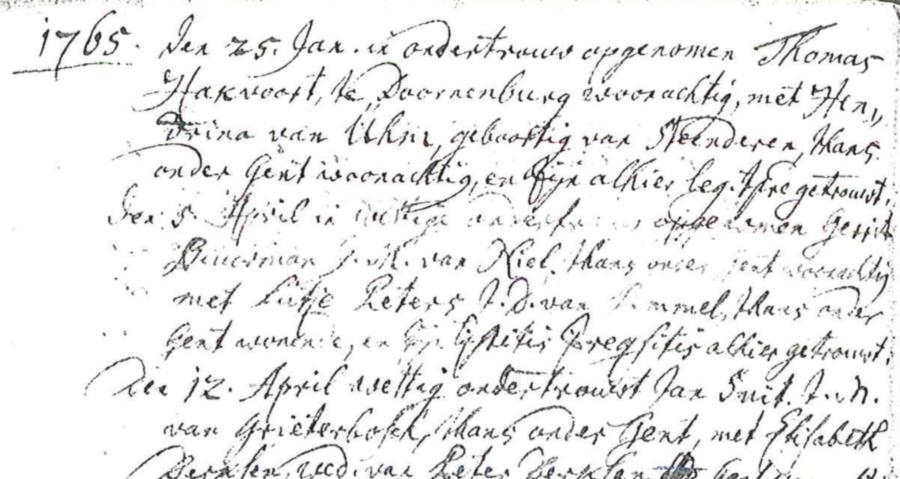 1765. Den 25. Jan. in ondertrouw opgenomen Thomas
Hakvoort, te Doornenburg woonachtig, met Hen„
drina van Uhm, geboortig van Steenderen, thans
onder Gent woonachtig, en zijn alhier leg. getrouwt.
Den 5. April in wettige opgenomen Gerrit
J. M. van Niel, thans onder Gent woonachtig
met Peters J. D. van thans onder
Gent wonende, en zijn alhier getrouwt.
Den 12. April wettig ondertrouwt Jan Smit. J. M.
van Grieterbosch, thans onder Gent, met Elisabeth
Derksen, wed. van Peter Derksen